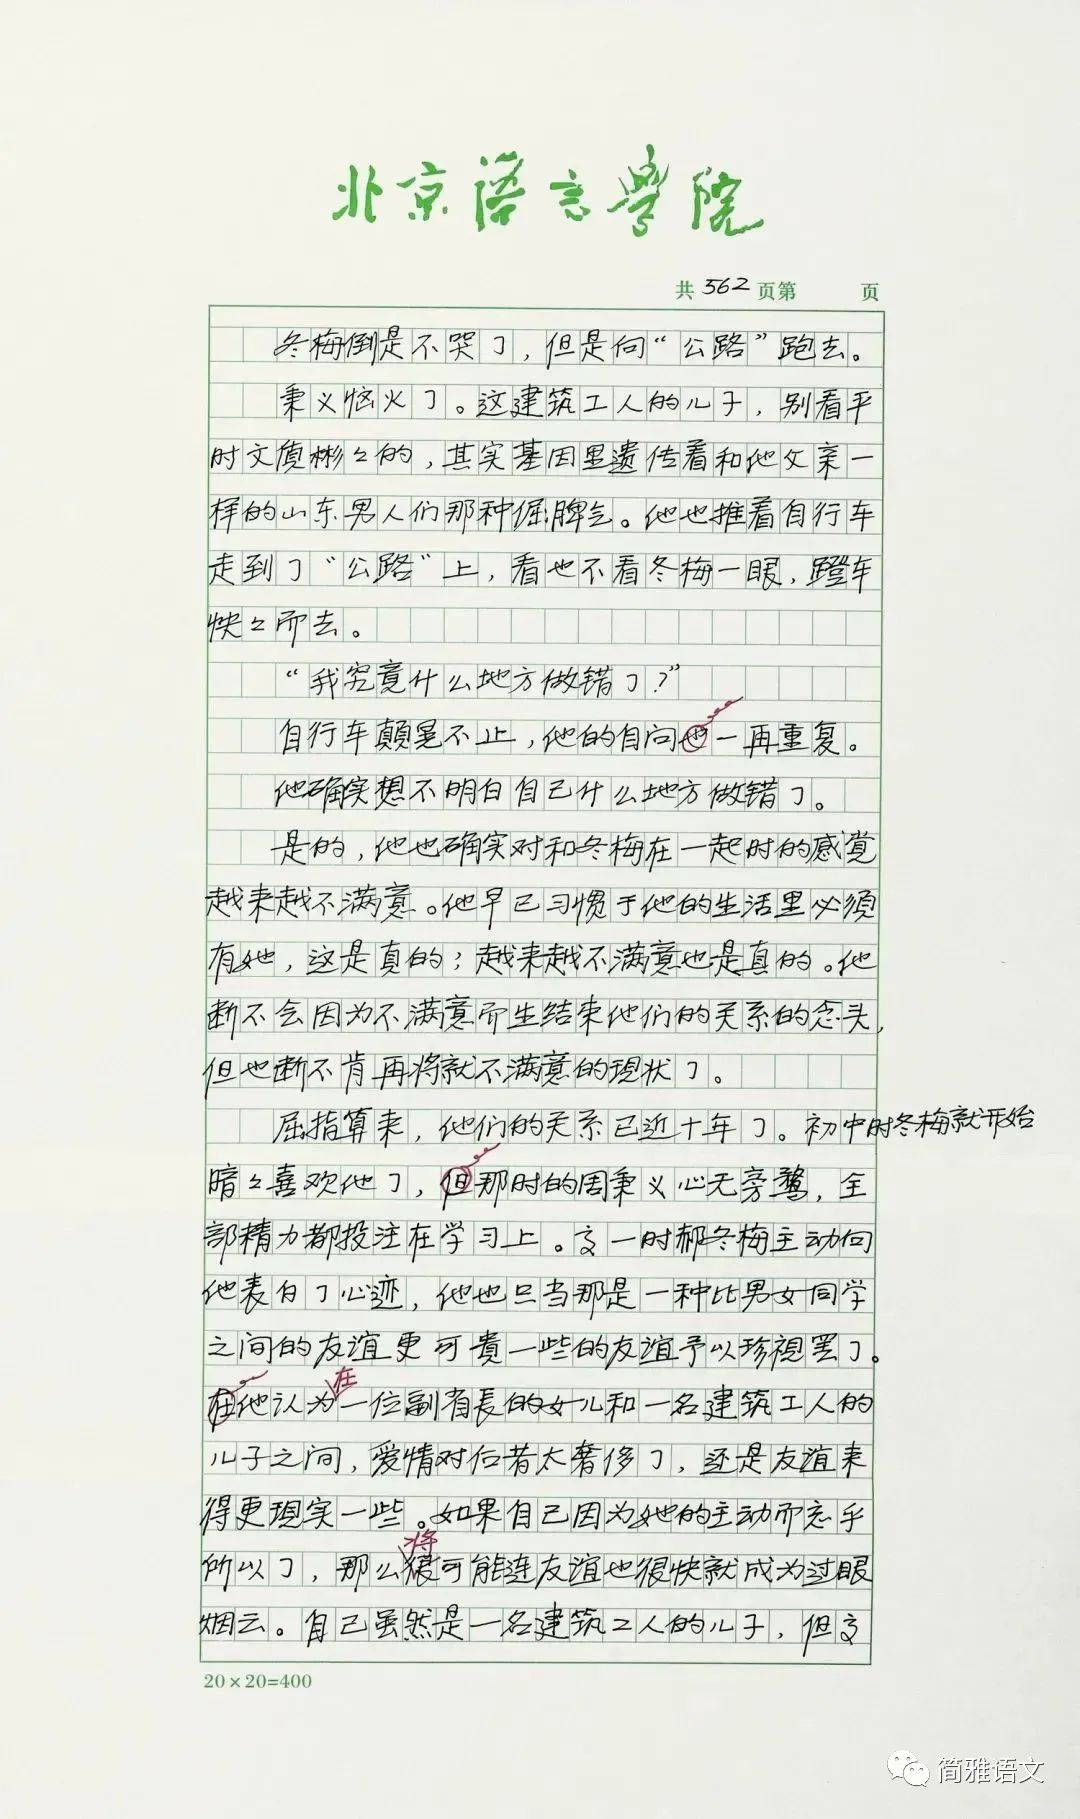 北京语言學院
共 362 页第 页
冬梅倒是不哭了，但是向“公路”跑去。
秉义恼火了。这建筑工人的儿子，别看平
时文质彬々的，其实基因里遗传着和他父亲一
样的山东男人们那种倔脾气。他也推着自行车
走到了“公路”上，看也不看冬梅一眼，蹬车
怏々而去。
“我究竟什么地方做错了？”
自行车颠晃不止，他的自问也一再重复。
他确实想不明白自己什么地方做错了。
是的，他也确实对和冬梅在一起时的感觉
越来越不满意。他早已习惯于他的生活里必须
有她，这是真的；越来越不满意也是真的。他
断不会因为不满意而生结束他们的关系的念头，
但也断不肯再将就不满意的现状了。
屈指算来，他们的关系已近十年了。初中时冬梅就开始
暗々喜欢他了，但那时的周秉义心无旁鹜，全
部精力都投注在学习上。高一时郝冬梅主动向
他表白了心迹，他也只当那是一种比男女同学
之间的友谊更可贵一些的友谊予以珍视罢了。
在
在他认为一位副省長的女儿和一名建筑工人的
儿子之间，爱情对后者太奢侈了，还是友谊来
得更现实一些。如果自己因为她的主动而忘乎
将
所以了，那么狠可能连友谊也很快就成为过眼
烟云。自己虽然是一名建筑工人的儿子，但高
20×20=400
简雅语文